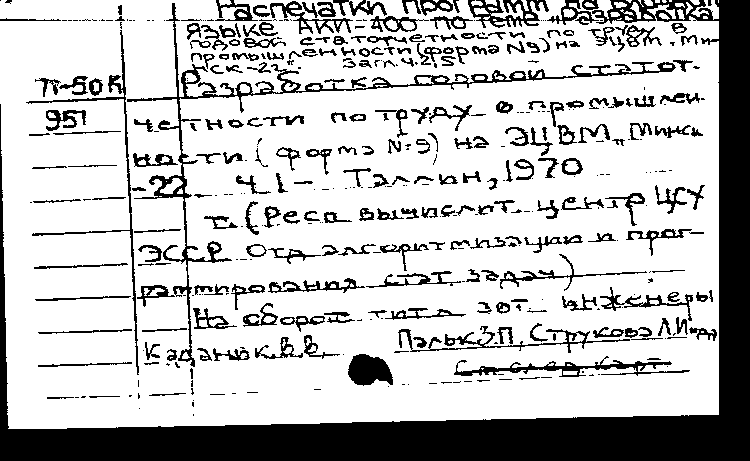 Распечатки программ на
языке АКИ-400 по теме „Разработка
годовой статотчетности по труду в
промышленности (форма №9) на ЭЦВМ „Ми-
нск-22". Загл. ч.2,5!
П-50К Разработка годовой статот-
951 четности по труду в промышлен-
ности (форма №9) на ЭЦВМ „Минск
-22. Ч.1- Таллин, 1970
т. (Респ вычислит. центр ЦСУ
ЭССР Отд алгоритмизации и прог-
раммирования стат. задач)
На оборот титл зот. инженеры
Каданик В.В. Пальк Э.П, Струкова Л.И
См след карт